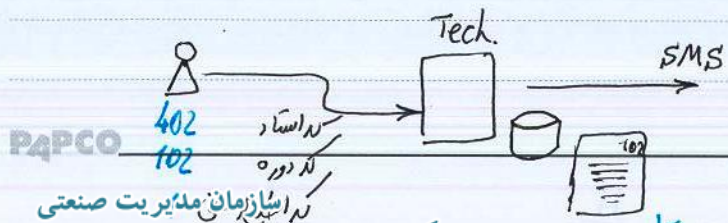 Tech.
SMS
402
102
کد استاد
کد دوره
102
PAPCO
سازمان مدیریت صنعتی